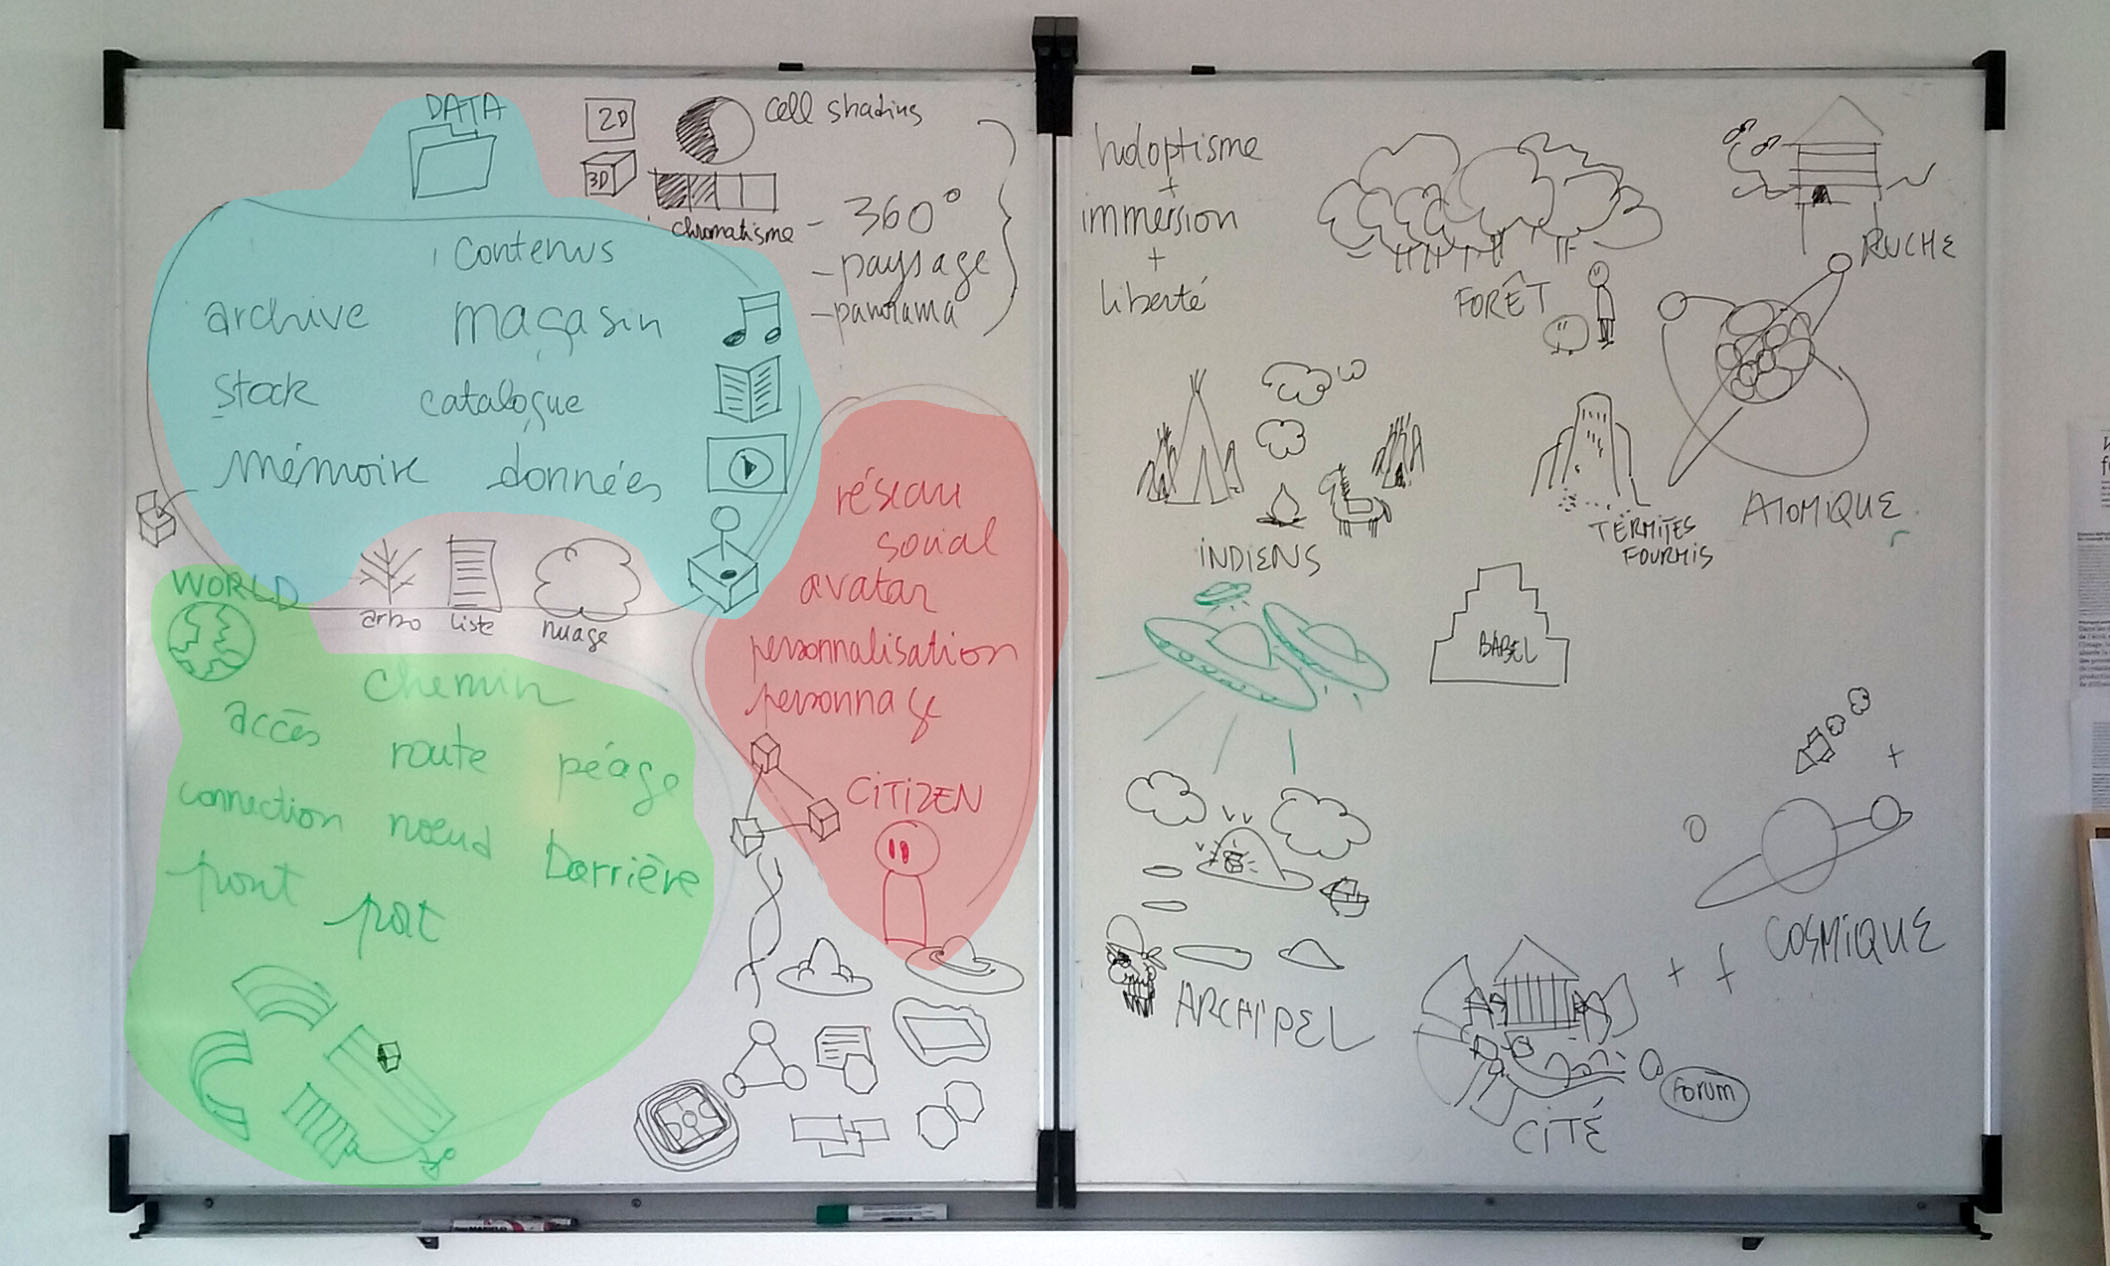 DATA
2D
3D
cell shading
chromatisme
- 360°
- paysage
- panorama
contenus
archive magasin
stock catalogue
mémoire données
arbo liste nuage
WORLD
chemin
accès route péage
connection nœud barrière
pont
réseau
social
avatar
personnalisation
personnage
CITIZEN
holoptisme
+
immersion
+
liberté
FORÊT
RUCHE
ATOMIQUE
TERMITES
FOURMIS
INDIENS
BABEL
COSMIQUE
ARCHIPEL
CITÉ
Forum